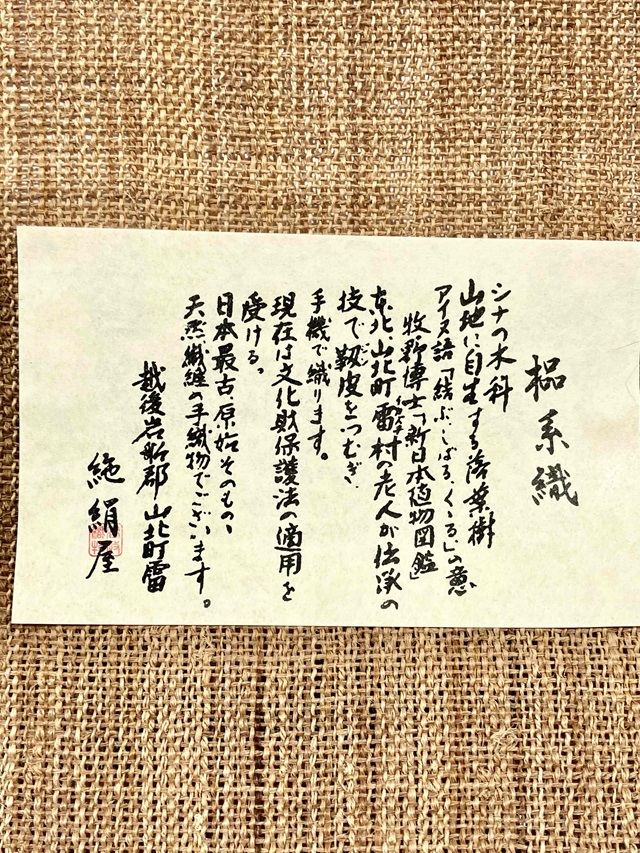 榀糸織
シナの木科
山地に自生する落葉樹
アイヌ語「結ぶ、しばる、くくる」の意
牧野博士「新日本植物図鑑」
東北山北町雷村の老人が伝承の
技で靱皮をつむぎ
手機で織ります。
現在は文化財保護法の適用を
受ける。
日本最古、原始そのもの、
天然繊維の手織物でございます。
越後岩船郡山北町雷
絁絹屋